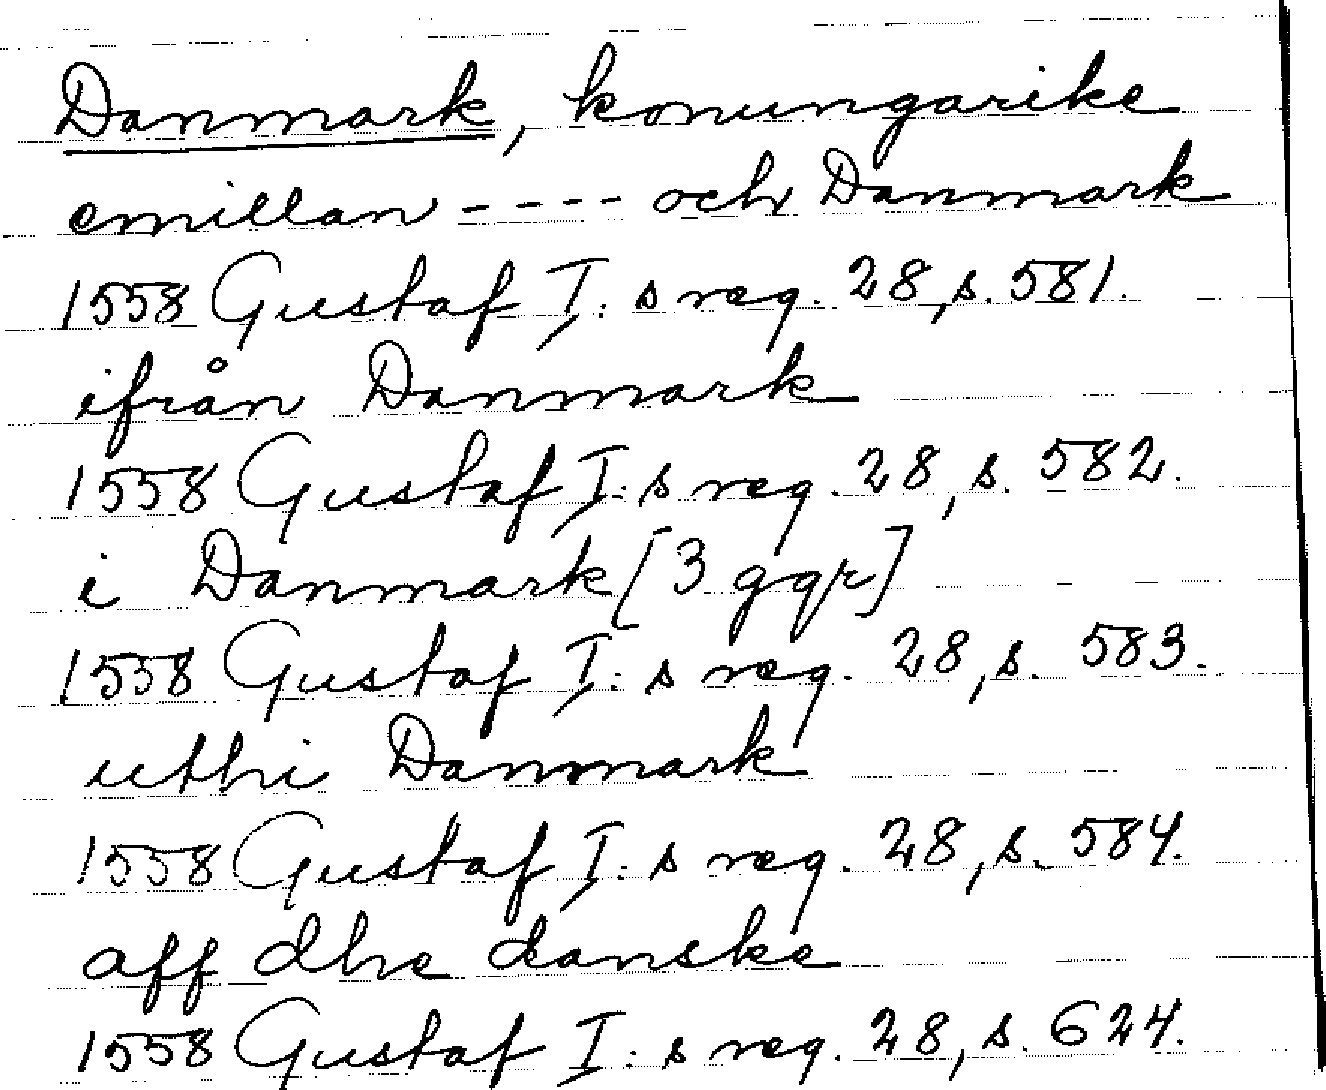 Danmark, konungarike
emillan - - - - och Danmark
1558 Gustaf I: s reg. 28, s. 581.
ifrån Danmark
1558 Gustaf I: s reg. 28, s. 582.
i Danmark [3 ggr]
1558 Gustaf I: s reg. 28, s. 583.
uthi Danmark
1558 Gustaf I: s reg. 28, s. 584.
aff dhe danske
1558 Gustaf I: s reg. 28, s. 624.